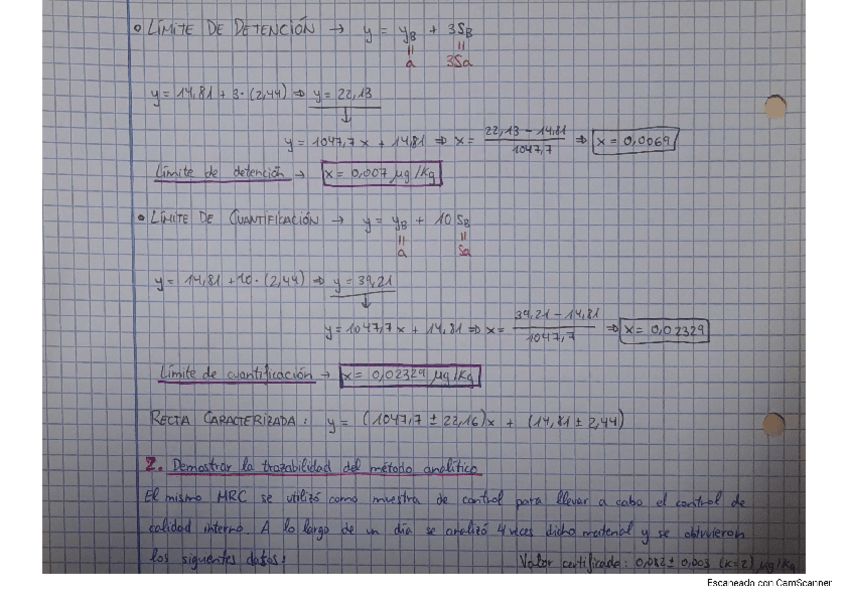 • LÍMITE DE DETENCIÓN → y = yB + 3SB
= a = 3Sa
y = 14,81 + 3·(2,44) ⇒ y = 22,13
y = 1047,7x + 14,81 ⇒ x = (22,13 − 14,81) / 1047,7 ⇒ x = 0,0069
Límite de detención → x = 0,007 µg/Kg
• LÍMITE DE CUANTIFICACIÓN → y = yB + 10SB
= a = Sa
y = 14,81 + 10·(2,44) ⇒ y = 39,21
y = 1047,7x + 14,81 ⇒ x = (39,21 − 14,81) / 1047,7 ⇒ x = 0,02329
Límite de cuantificación → x = 0,02329 µg/Kg
RECTA CARACTERIZADA: y = (1047,7 ± 22,16)x + (14,81 ± 2,44)
2. Demostrar la trazabilidad del método analítico
El mismo MRC se utilizó como muestra de control para llevar a cabo el control de
calidad interno. A lo largo de un día se analizó 4 veces dicho material y se obtuvieron
los siguentes datos: Valor certificado: 0,082 ± 0,003 (K=2) µg/Kg
Escaneado con CamScanner